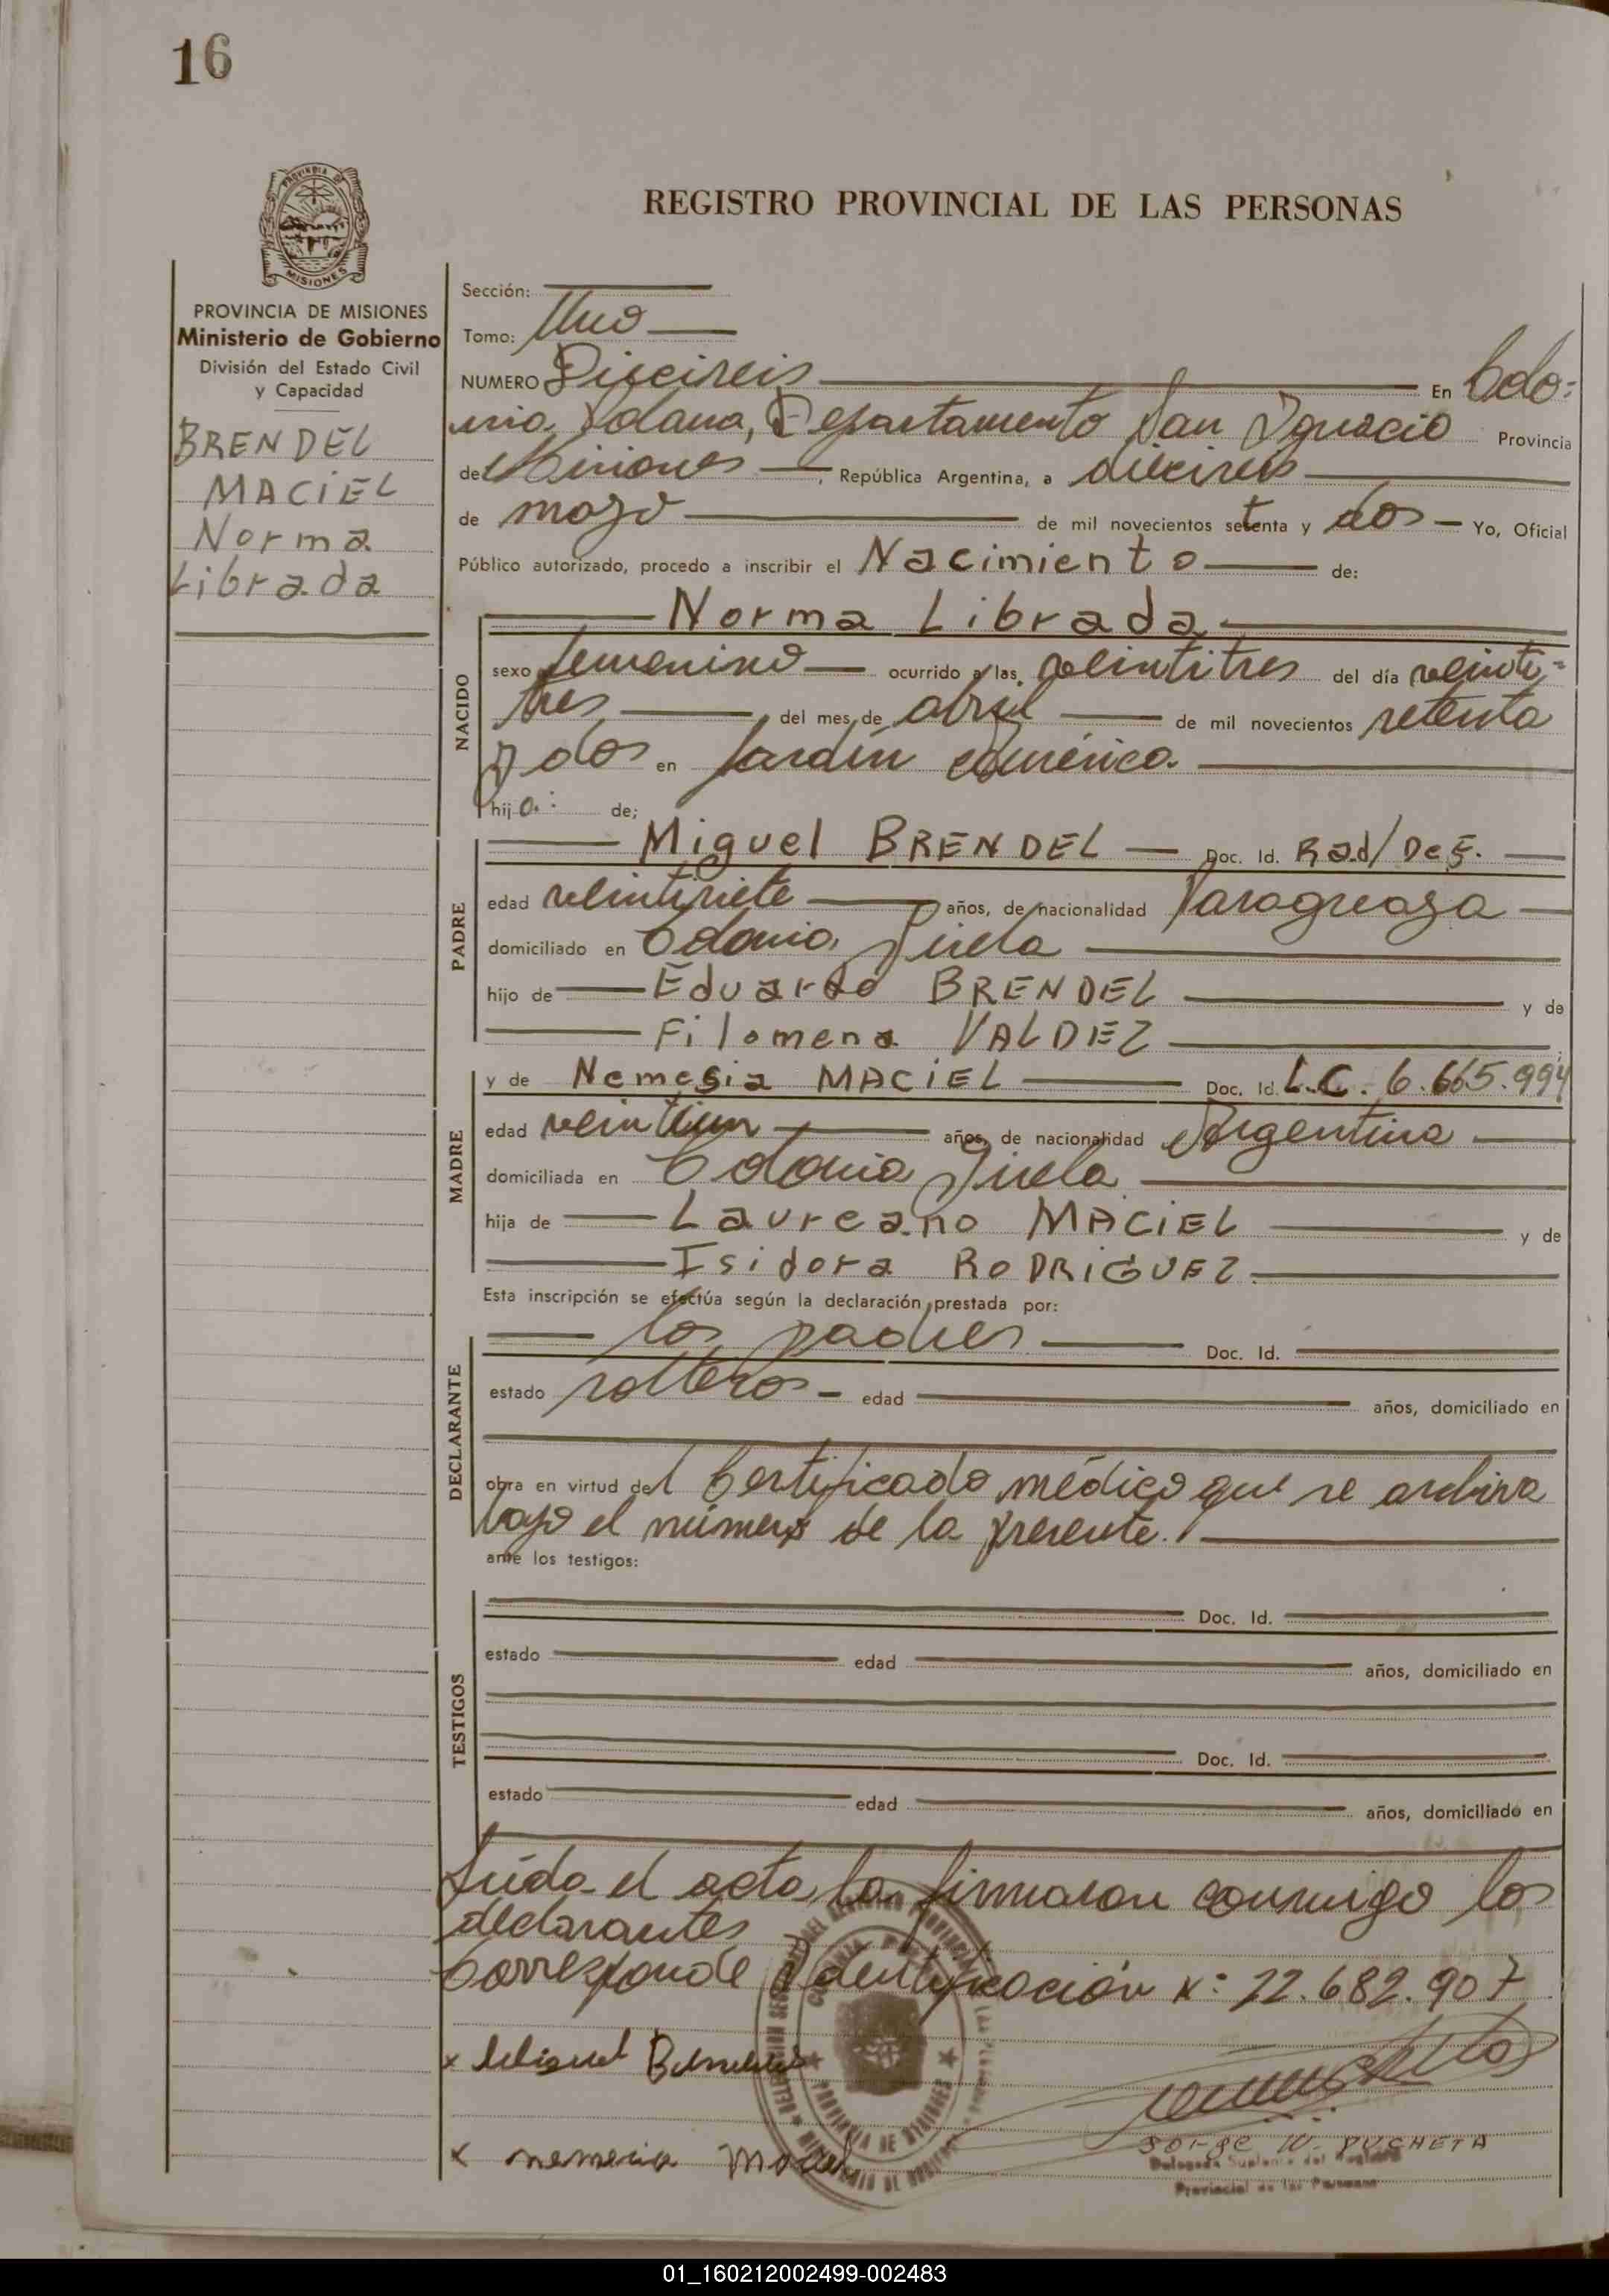 16
PROVINCIA DE MISIONES
Ministerio de Gobierno
División del Estado Civil
y Capacidad
BRENDEL
MACIEL
Norma
Librada
REGISTRO PROVINCIAL DE LAS PERSONAS
Sección:
Tomo: Uno
NUMERO Dieciseis En Colo=
nia Polana, Departamento San Ignacio Provincia
de Misiones, República Argentina, a dieciseis
de mayo de mil novecientos setenta y dos Yo, Oficial
Público autorizado, procedo a inscribir el Nacimiento de:
NACIDO
Norma Librada
sexo femenino ocurrido a las veintitres del día veinti=
tres del mes de abril de mil novecientos setenta
y dos en Jardín América
hija: de;
PADRE
Miguel BRENDEL Doc. Id. Rad/Des.
edad veintisiete años, de nacionalidad Paraguaya
domiciliado en Colonia
hijo de Eduardo BRENDEL y de
Filomena VALDEZ
MADRE
y de Nemesia MACIEL Doc. Id. L.C. 6.665.994
edad veintiun años, de nacionalidad Argentina
domiciliada en Colonia
hija de Laureano MACIEL y de
Isidora RODRIGUEZ
Esta inscripción se efectúa según la declaración prestada por:
DECLARANTE
los padres Doc. Id.
estado solteros - edad años, domiciliado en
obra en virtud del Certificado médico que se archiva
bajo el número de la presente.
ante los testigos:
TESTIGOS
Doc. Id.
estado edad años, domiciliado en
Doc. Id.
estado edad años, domiciliado en
Leída el acta, la firmaron conmigo los
declarantes
Corresponde Identificación N: 22.682.907
x Miguel Brendel
x nemecia Maciel
Jorge W. PUCHETA
Delegado Suplente del Registro
Provincial de las Personas
PROVINCIA DE MISIONES
01_160212002499-002483